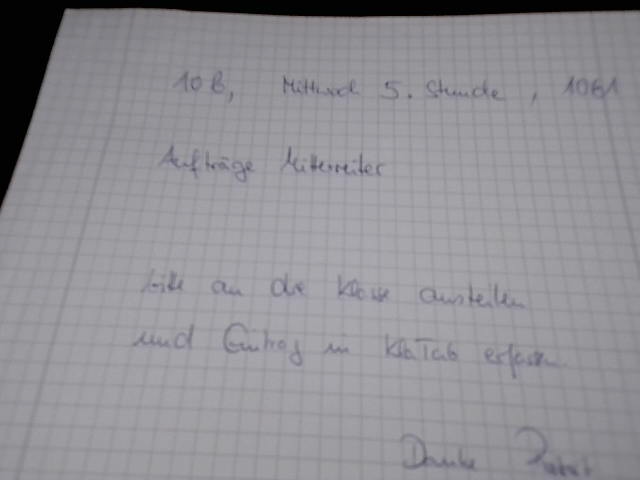 10 B, Mittwoch 5. Stunde, 1061
Aufträge Mitterreiter
bitte an die Klasse austeilen
und Eintrag in KlaTab erfassen
Danke